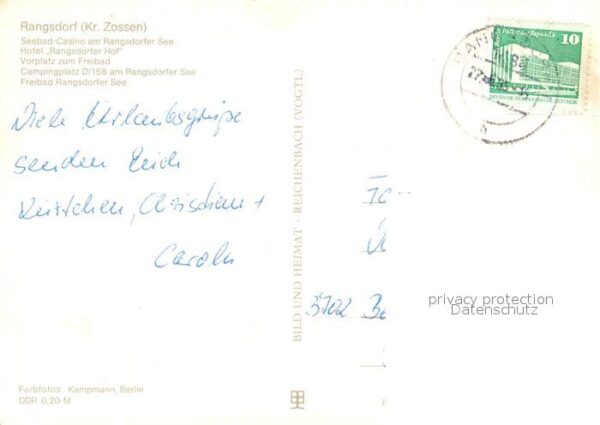 Rangsdorf (Kr. Zossen)
Seebad-Casino am Rangsdorfer See
Hotel „Rangsdorfer Hof"
Vorplatz zum Freibad
Campingplatz D/158 am Rangsdorfer See
Freibad Rangsdorfer See
Viele Urlaubsgrüße
senden Euch
Christian +
Carola
BILD UND HEIMAT · REICHENBACH (VOGTL)
Palast der Republik
10
DEUTSCHE DEMOKRATISCHE REPUBLIK
3702
privacy protection
Datenschutz
Farbfotos: Kampmann, Berlin
DDR 0,20 M